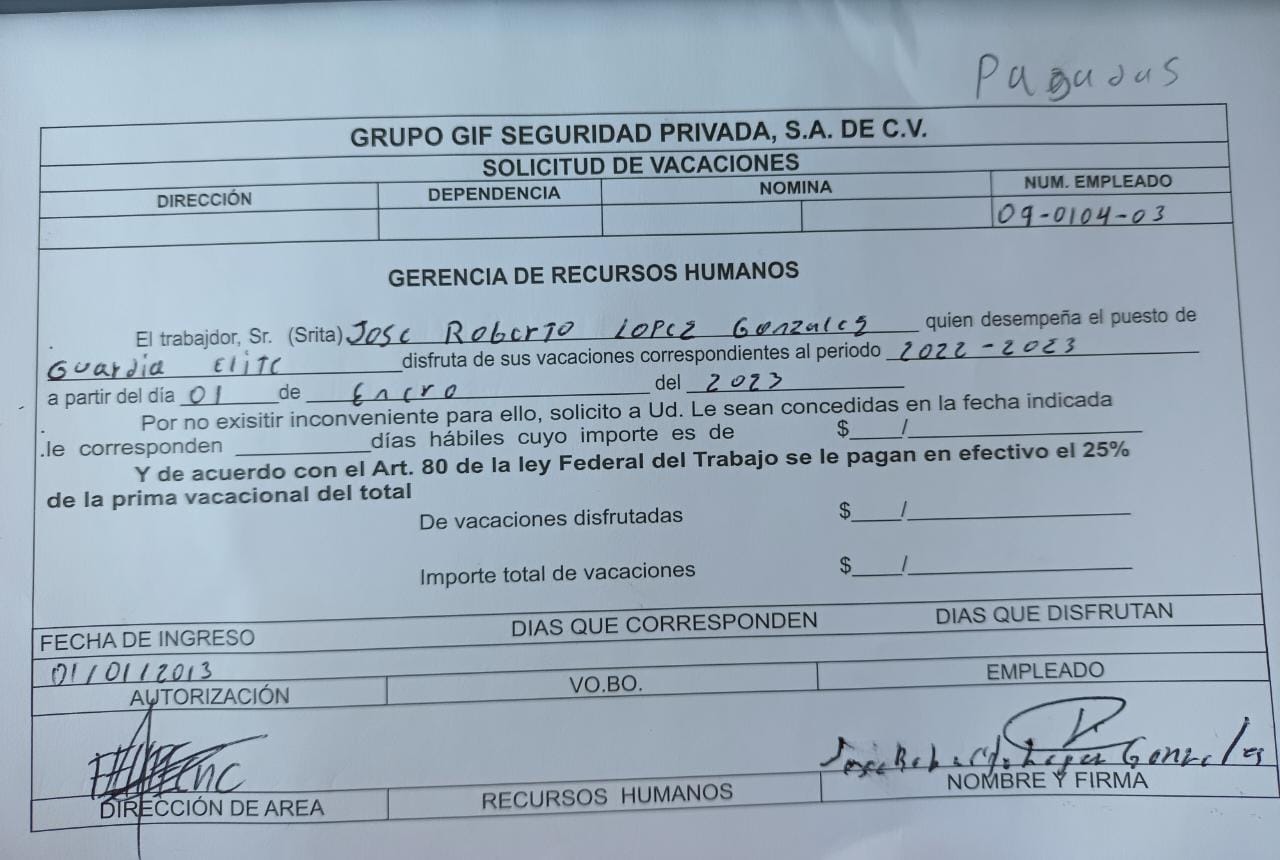 Pagadas
GRUPO GIF SEGURIDAD PRIVADA, S.A. DE C.V.
SOLICITUD DE VACACIONES
DIRECCIÓN DEPENDENCIA NOMINA NUM. EMPLEADO
09-0104-03
GERENCIA DE RECURSOS HUMANOS
El trabajdor, Sr. (Srita) Jose Roberto Lopez Gonzalez quien desempeña el puesto de
Guardia Elite disfruta de sus vacaciones correspondientes al periodo 2022-2023
a partir del día 01 de Enero del 2023
Por no exisitir inconveniente para ello, solicito a Ud. Le sean concedidas en la fecha indicada
.le corresponden ______ días hábiles cuyo importe es de $____/____
Y de acuerdo con el Art. 80 de la ley Federal del Trabajo se le pagan en efectivo el 25%
de la prima vacacional del total
De vacaciones disfrutadas $____/____
Importe total de vacaciones $____/____
FECHA DE INGRESO DIAS QUE CORRESPONDEN DIAS QUE DISFRUTAN
01/01/2013
AUTORIZACIÓN VO.BO. EMPLEADO
Gonzales
DIRECCIÓN DE AREA RECURSOS HUMANOS NOMBRE Y FIRMA